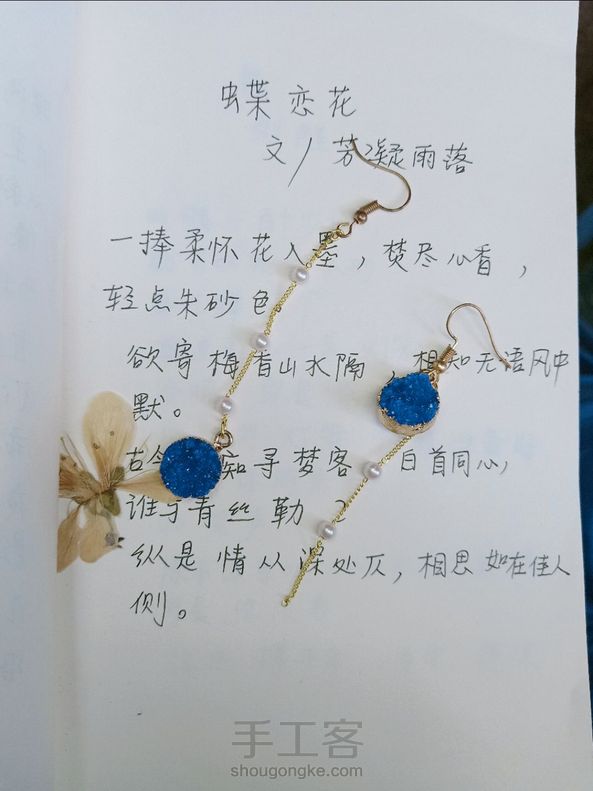 蝶恋花
文/芳凝雨落
一捧柔怀花入墨，焚尽心香，
轻点朱砂色
欲寄梅香山水隔，相知无语风中
默。
古 痴寻梦客 白首同心，
谁与青丝勒
纵是情从深处仄，相思如在佳人
侧。
手工客
shougongke.com